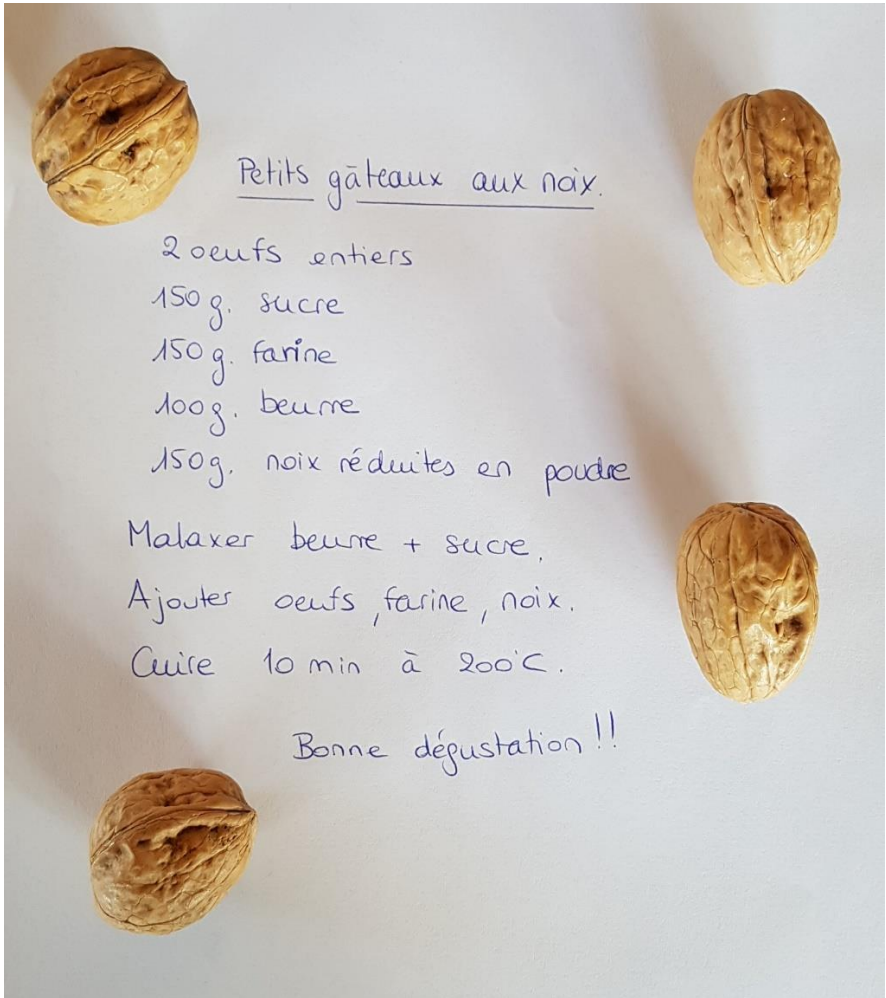 Petits gâteaux aux noix.
2 oeufs entiers
150g. sucre
150g. farine
100g. beurre
150g. noix réduites en poudre
Malaxer beurre + sucre.
Ajouter oeufs, farine, noix.
Cuire 10 min à 200°C.
Bonne dégustation!!